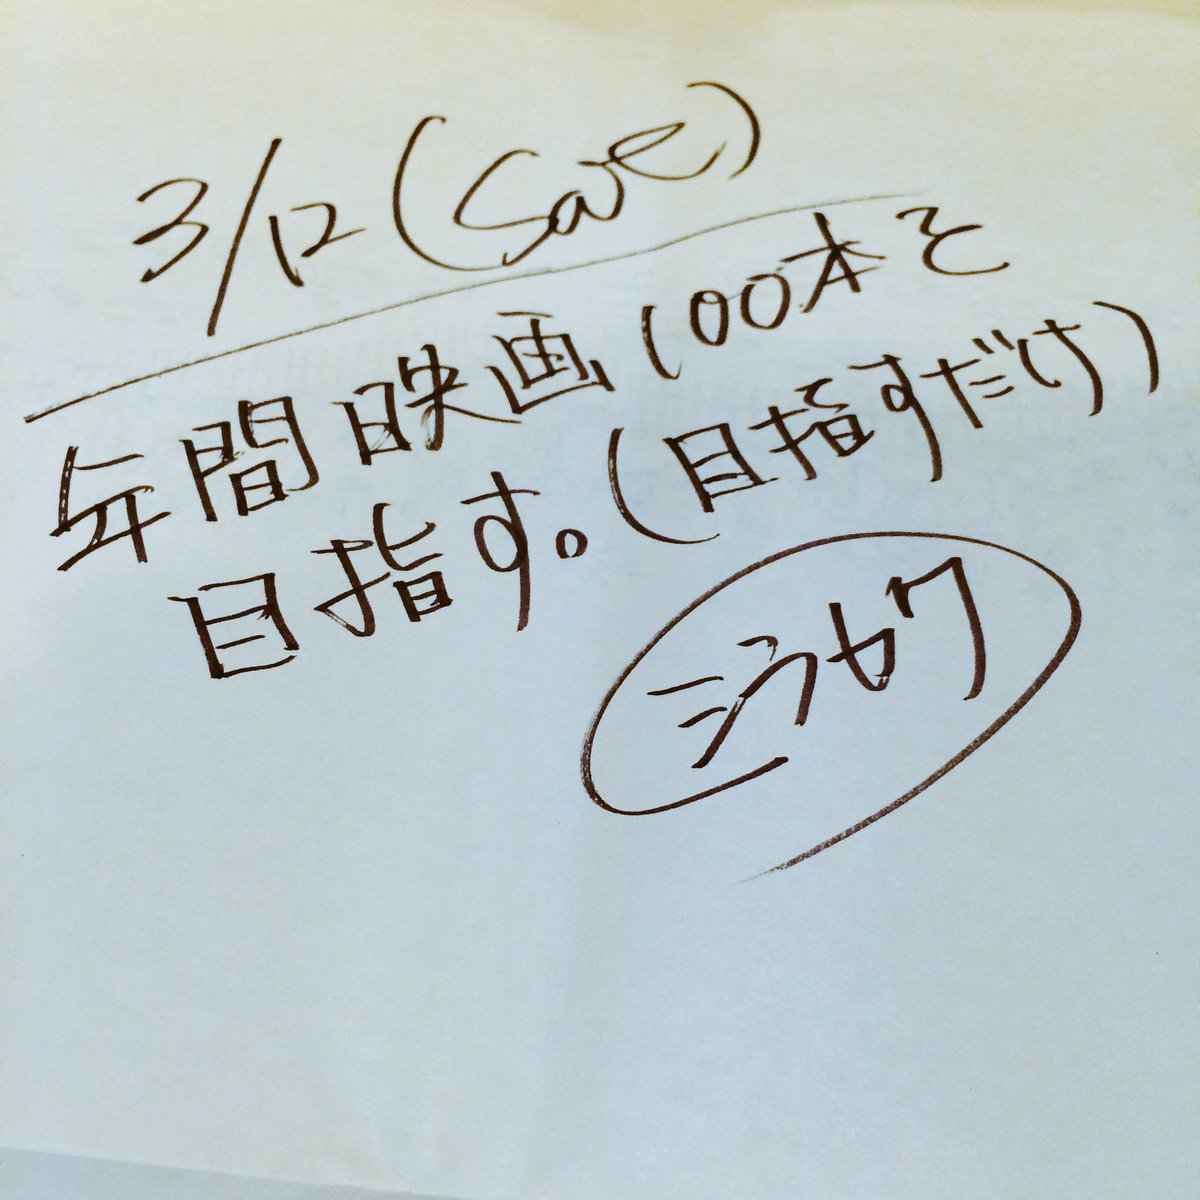 3/12(Sat)
年間映画100本を
目指す。(目指すだけ)
ミウセワ